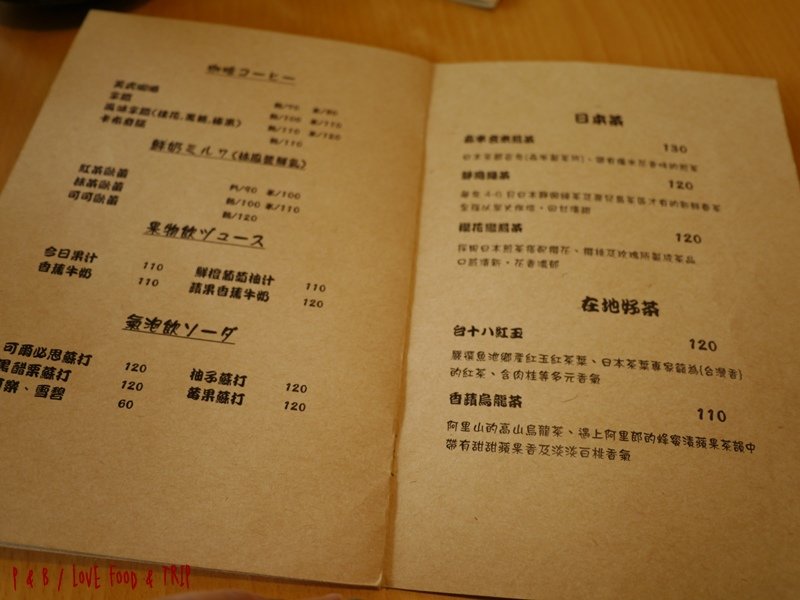 咖啡コーヒー
美式咖啡 熱/70 冰/80
拿鐵 熱/100 冰/110
風味拿鐵(桂花,黑糖,榛果) 熱/110 冰/120
卡布奇諾 熱/110
鮮奶ミルク(林鳳營鮮乳)
紅茶歐蕾 熱/90 冰/100
抹茶歐蕾 熱/100 冰/110
可可歐蕾 熱/120
果物飲ジュース
今日果汁 110 鮮橙葡萄柚汁 110
香蕉牛奶 110 蘋果香蕉牛奶 120
氣泡飲ソーダ
可爾必思蘇打 120 柚子蘇打 120
黑醋栗蘇打 120 莓果蘇打 120
可樂、雪碧 60
日本茶
130
靜岡綠茶 120
櫻花 120
在地好茶
台十八紅玉 120
嚴選魚池鄉產紅玉紅茶葉、日本茶葉專家譽為(台灣香)
的紅茶、含肉桂等多元香氣
香蘋烏龍茶 110
阿里山的高山烏龍茶、遇上阿里郎的蜂蜜漬蘋果茶韻中
帶有甜甜蘋果香及淡淡白桃香氣
P & B / LOVE FOOD & TRIP